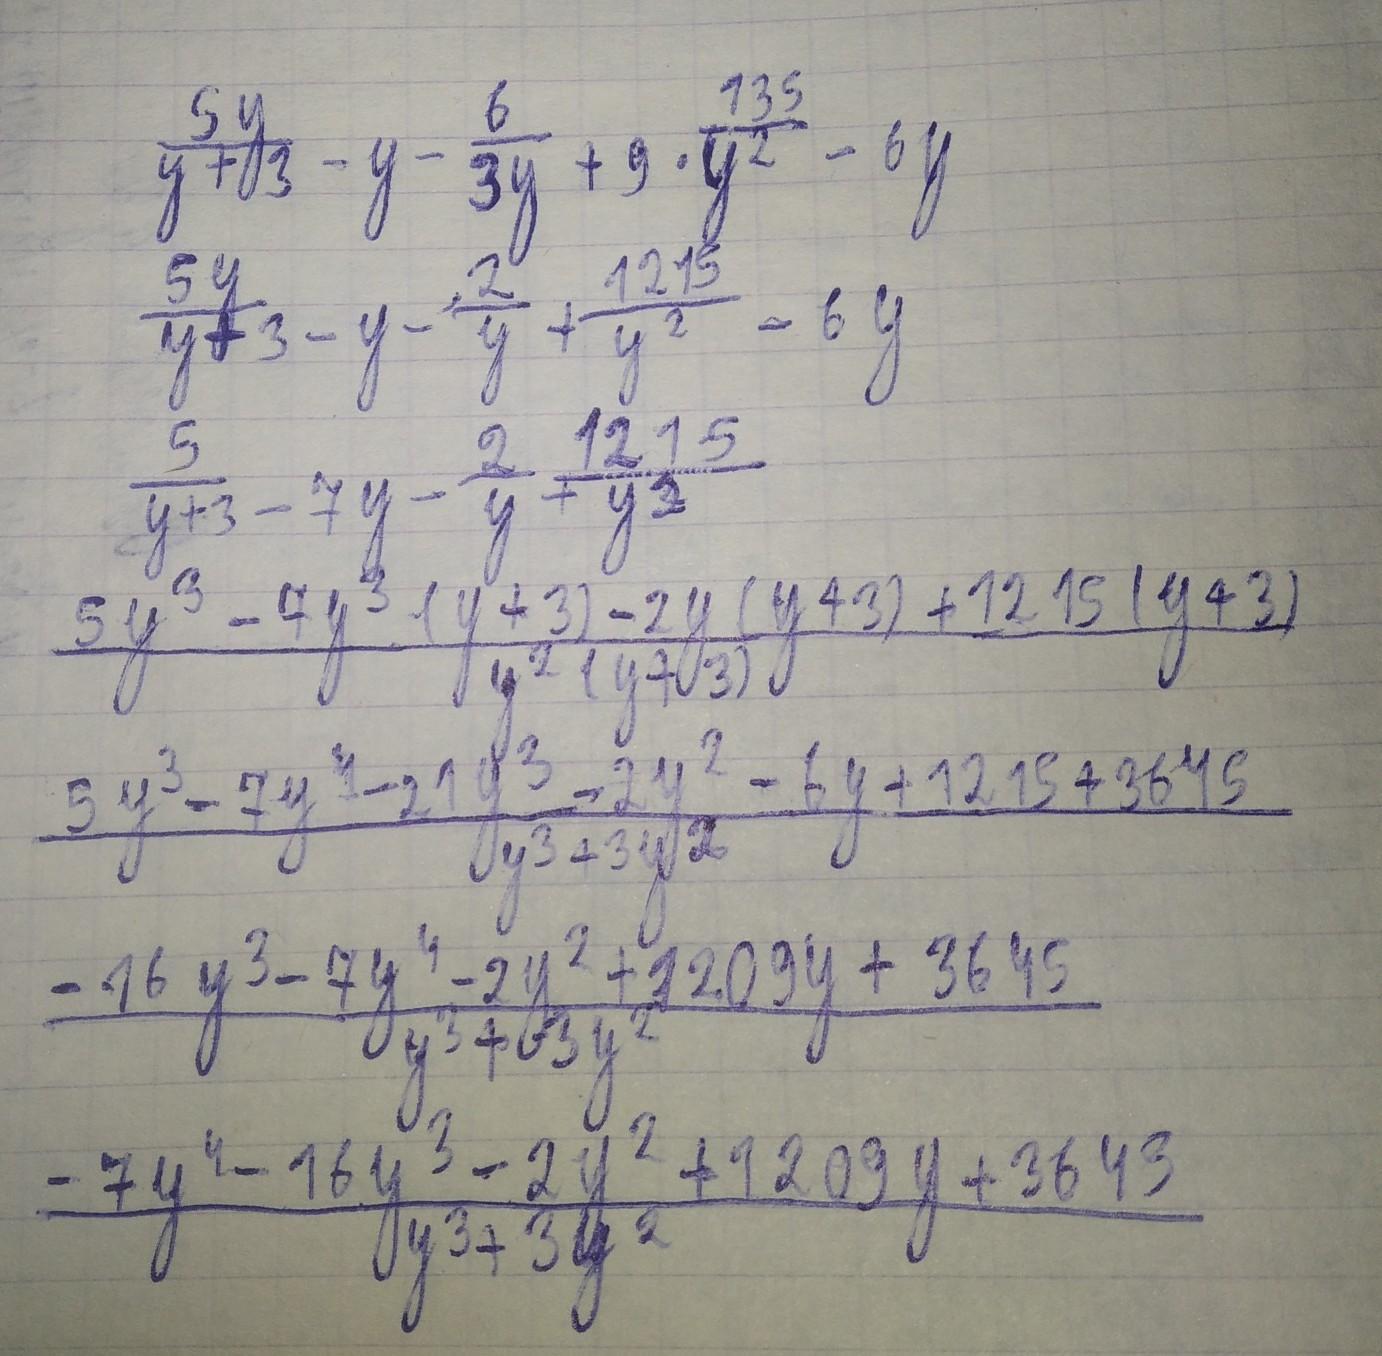 5y/(y+3) - y - 6/(3y) + 9 · 135/y² - 6y
5y/(y+3) - y - 2/y + 1215/y² - 6y
5/(y+3) - 7y - 2/y + 1215/y²
(5y³ - 7y³ (y+3) - 2y (y+3) + 1215 (y+3))/(y² (y+3))
(5y³ - 7y⁴ - 21y³ - 2y² - 6y + 1215 + 3645)/(y³ + 3y²)
(-16y³ - 7y⁴ - 2y² + 1209y + 3645)/(y³ + 3y²)
(-7y⁴ - 16y³ - 2y² + 1209y + 3645)/(y³ + 3y²)